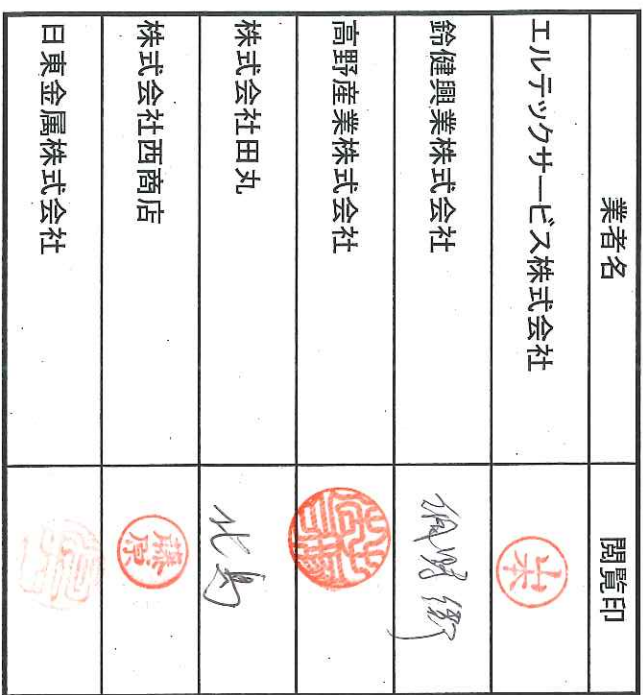 業者名 閲覧印
エルテックサービス株式会社
鈴健興業株式会社
高野産業株式会社
株式会社田丸 北島
株式会社西商店 藤原
日東金属株式会社